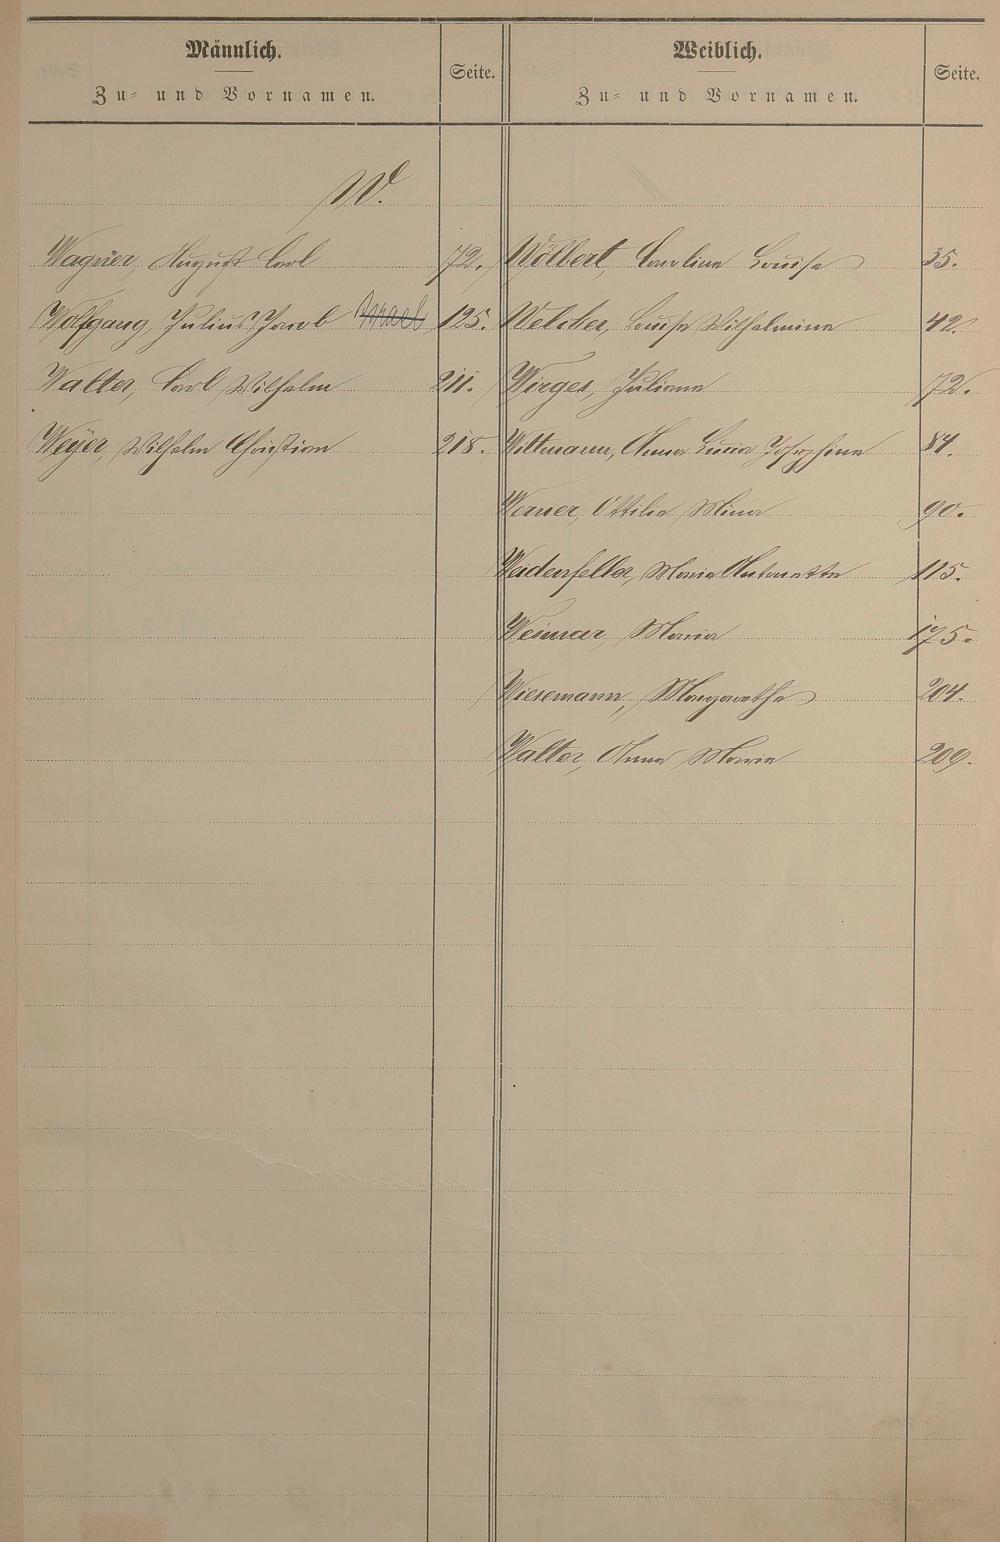 Männlich.
Zu- und Vornamen.
Seite.
Weiblich.
Zu- und Vornamen.
Seite.
W.
Wagner, August Carl 72.
Wolfgang, Julius Jacob Israel 125.
Walter, Carl Wilhelm 211.
Weyer, Wilhelm Christian 218.
Wölbert, Caroline Louise 35.
Welcker, Louise Wilhelmine 42.
Wirges, Juliane 72.
Wittmann, Anna Lucia Josephine 84.
Werner, Ottilie Mina 90.
Weidenfeller, Maria Antonette 115.
Weimar, Maria 175.
Wiesemann, Margarethe 204.
Walter, Anna Maria 209.